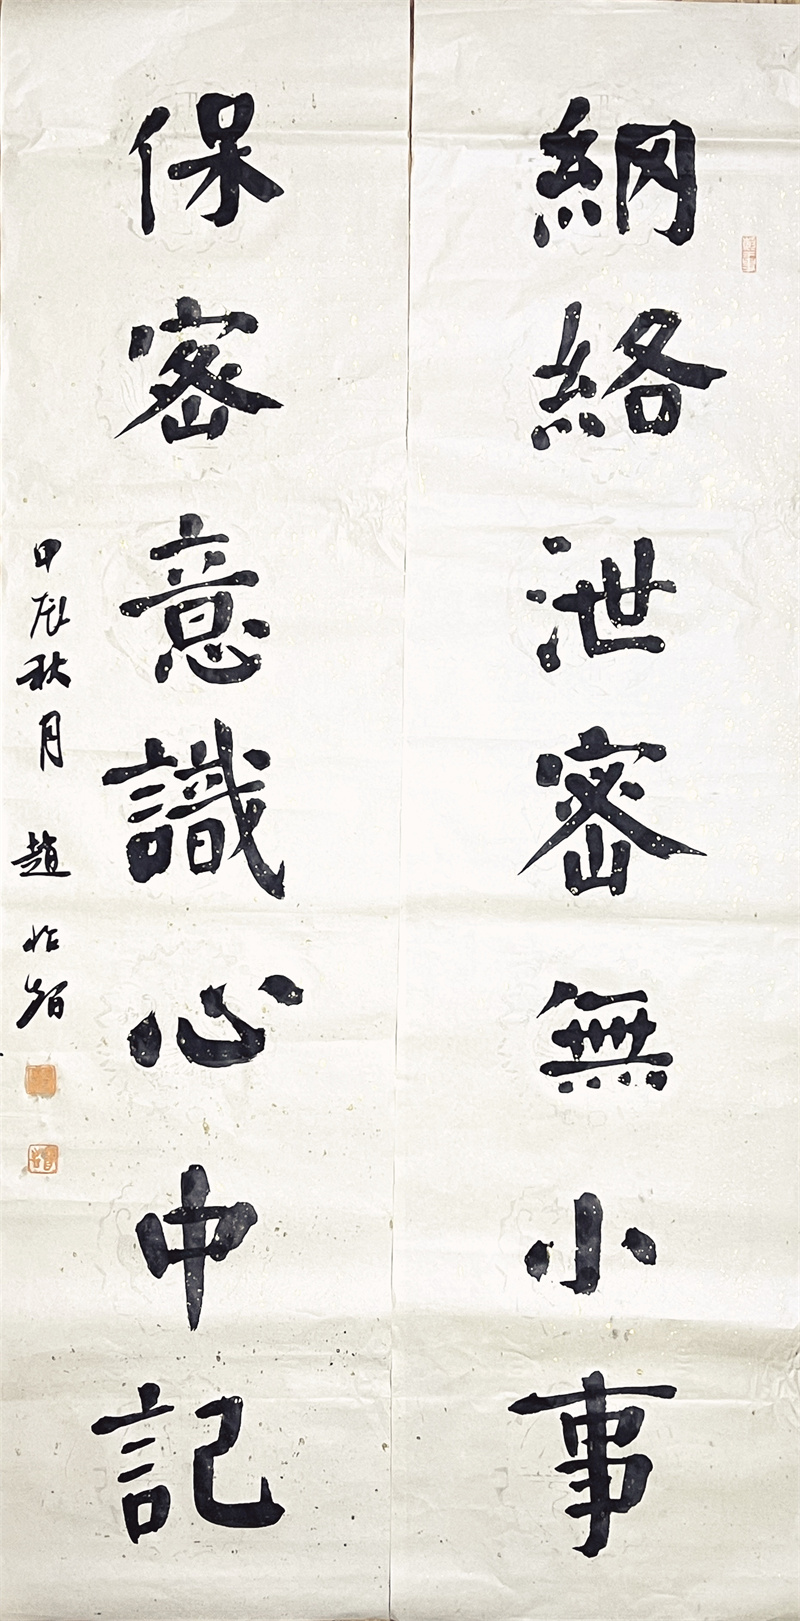 網絡泄密無小事
保密意識心中記
甲辰秋月 趙